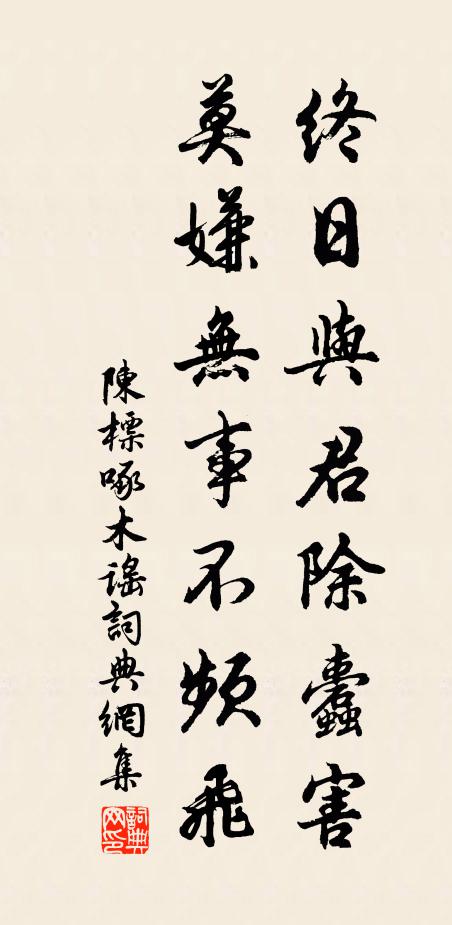 終日與君除蠹害
莫嫌無事不頻飛
陳標啄木謠詞典網集
詞典
网印